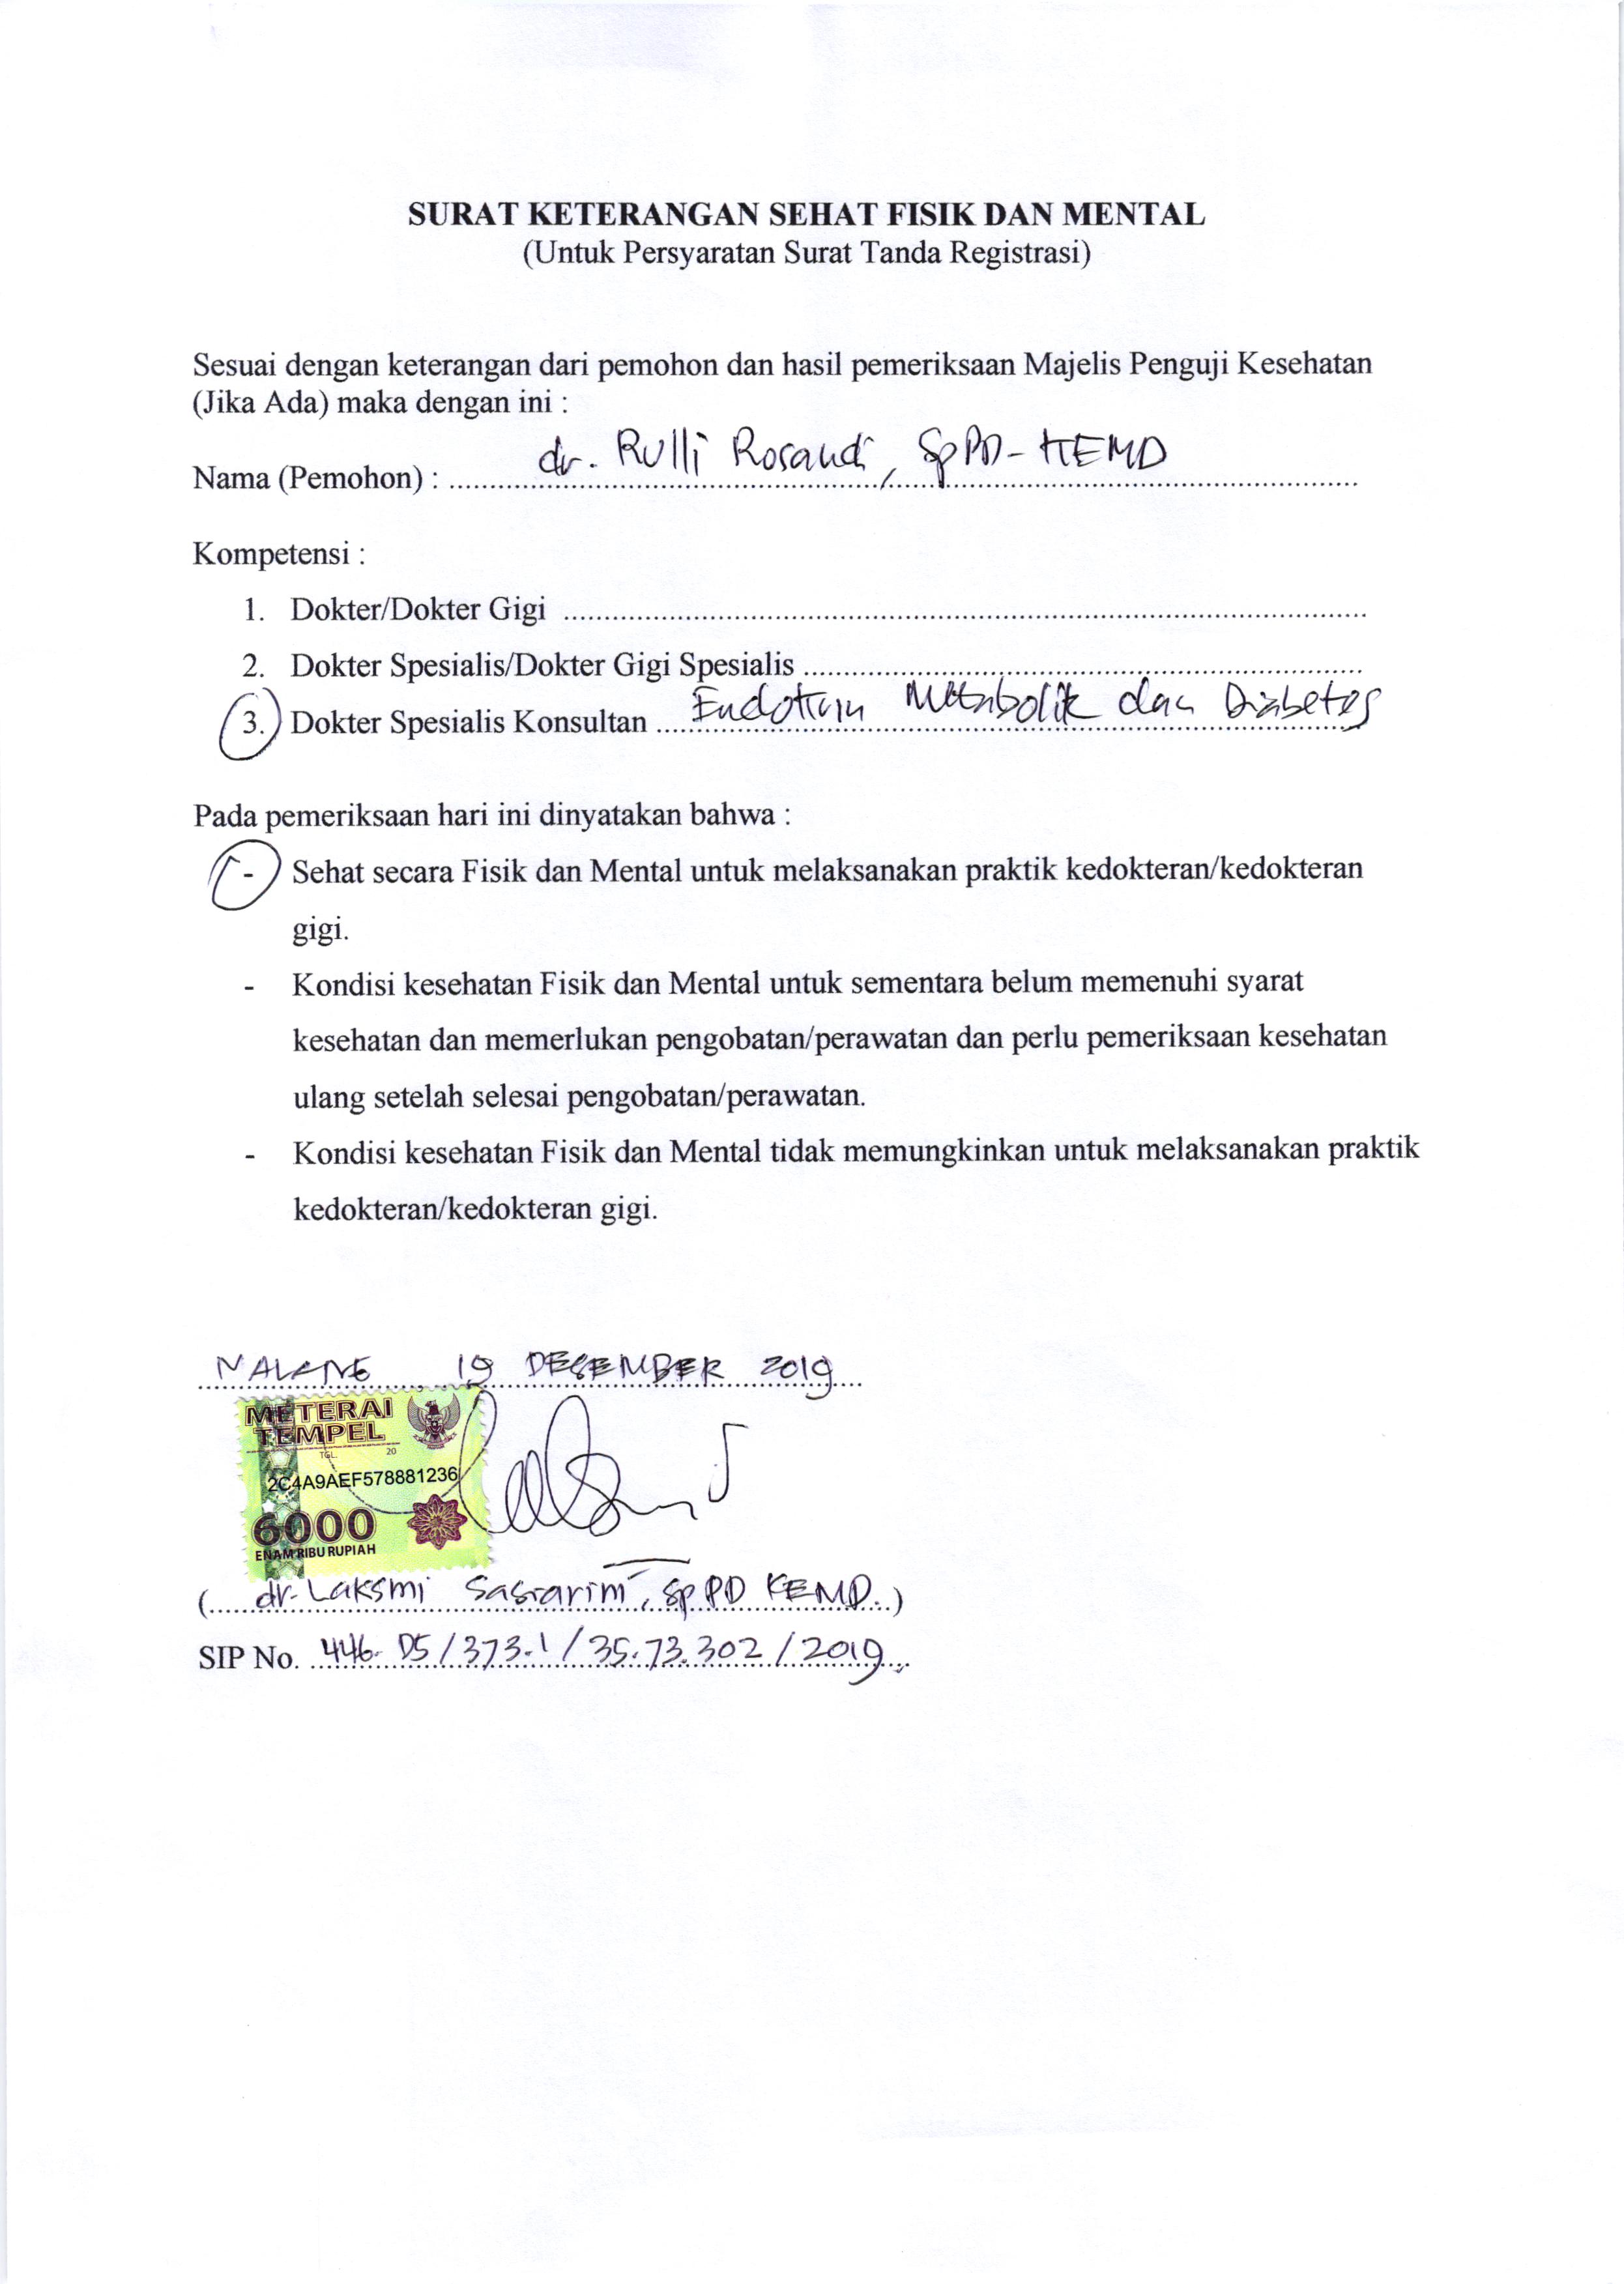 SURAT KETERANGAN SEHAT FISIK DAN MENTAL
(Untuk Persyaratan Surat Tanda Registrasi)
Sesuai dengan keterangan dari pemohon dan hasil pemeriksaan Majelis Penguji Kesehatan
(Jika Ada) maka dengan ini :
Nama (Pemohon) : dr. Rulli Rosandi, SpPD-KEMD
Kompetensi :
1. Dokter/Dokter Gigi
2. Dokter Spesialis/Dokter Gigi Spesialis
3. Dokter Spesialis Konsultan Endokrin Metabolik dan Diabetes
Pada pemeriksaan hari ini dinyatakan bahwa :
- Sehat secara Fisik dan Mental untuk melaksanakan praktik kedokteran/kedokteran
gigi.
- Kondisi kesehatan Fisik dan Mental untuk sementara belum memenuhi syarat
kesehatan dan memerlukan pengobatan/perawatan dan perlu pemeriksaan kesehatan
ulang setelah selesai pengobatan/perawatan.
- Kondisi kesehatan Fisik dan Mental tidak memungkinkan untuk melaksanakan praktik
kedokteran/kedokteran gigi.
MALANG, 19 DESEMBER 2019
METERAI
TEMPEL
TGL. 20
2C4A9AEF578881236
6000
ENAM RIBU RUPIAH
(dr. Laksmi Sasiarini, SpPD KEMD.)
SIP No. 446.DS/373.1/35.73.302/2019